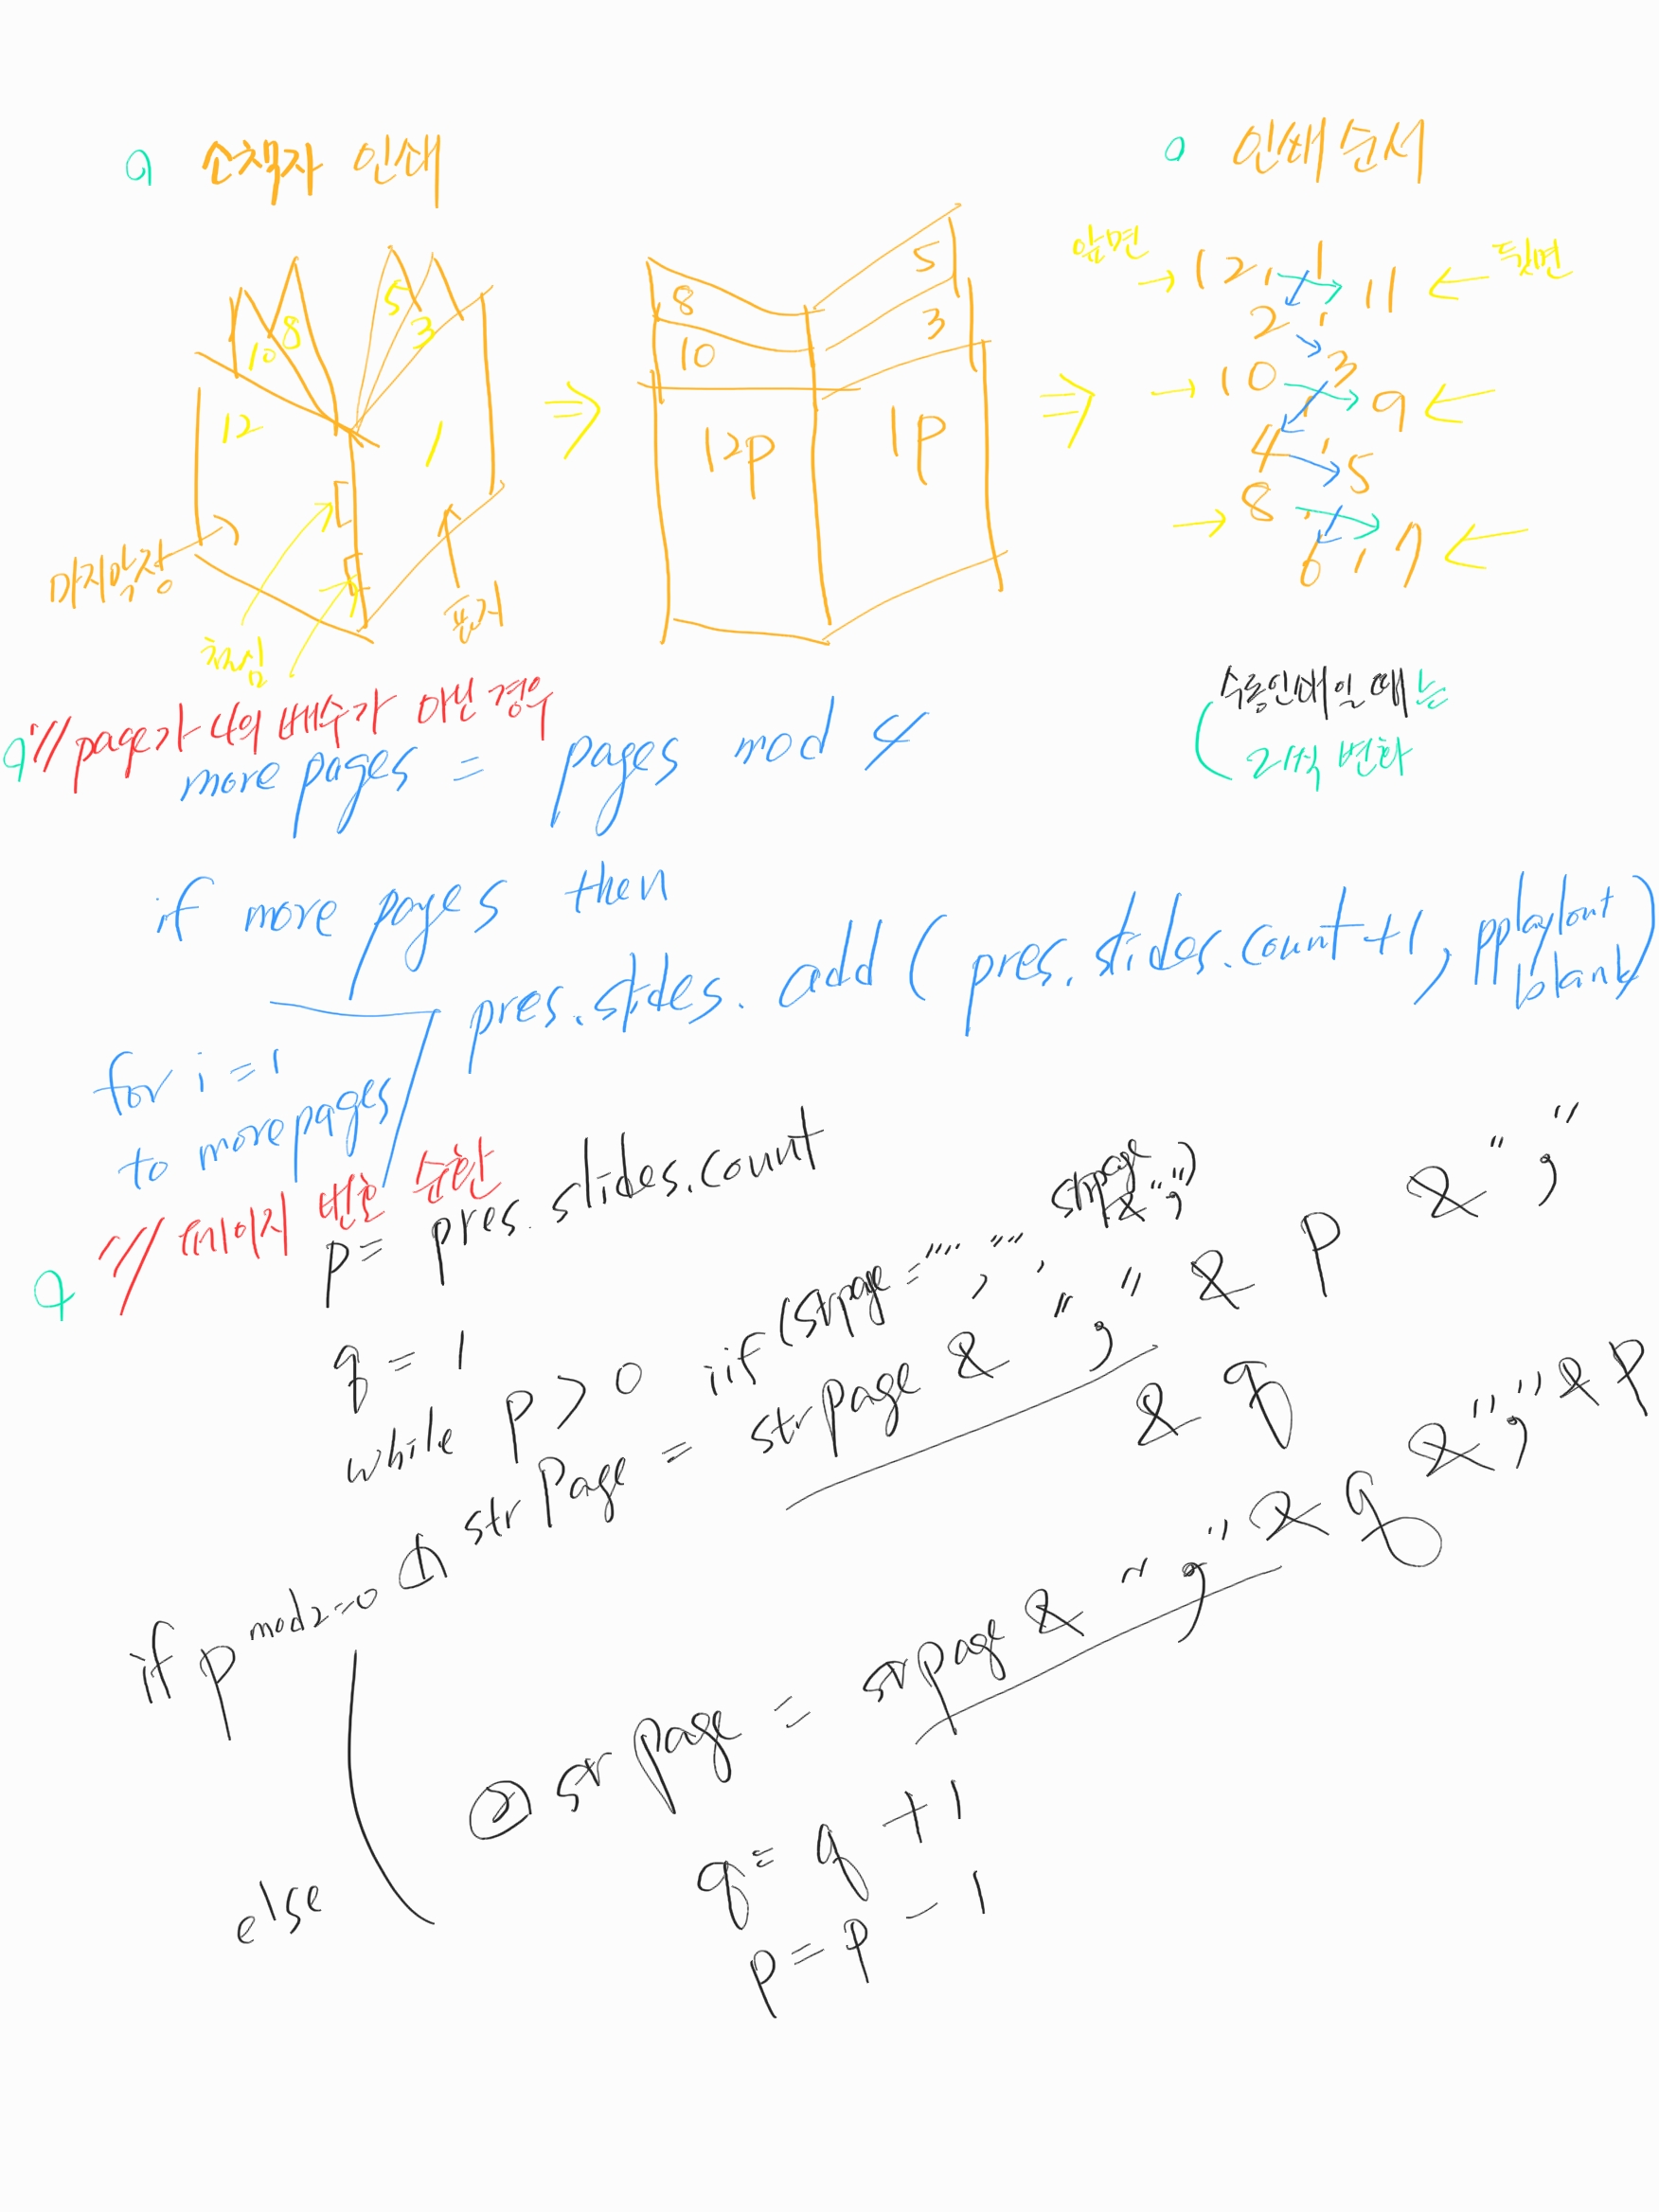 소책자 인쇄
인쇄 순서
10 8 5 3
12 1
마지막장
표지
8 5
10 3
12p 1p
앞면 → 12, 1 11 ← 뒷면
2,
→ 10, 3 9 ←
4, 5
→ 8, 7 ←
6,
수동인쇄일 때는
2씩 변화
'// page가 4의 배수가 아닌 경우
more pages = pages mod 4
if more pages then
pres.slides.add(pres.slides.count+1, pplaylout blank)
for i = 1
to more pages
'// 페이지 번호 순환
p = pres.slides.count
q = 1
while p > 0
iif(strpage = "", "", strpage & ",")
① strPage = strpage & "," & p & ","
& q
if p mod 2 = 0
② strpage = strpage & "," & q & "," & p
else
q = q + 1
p = p - 1